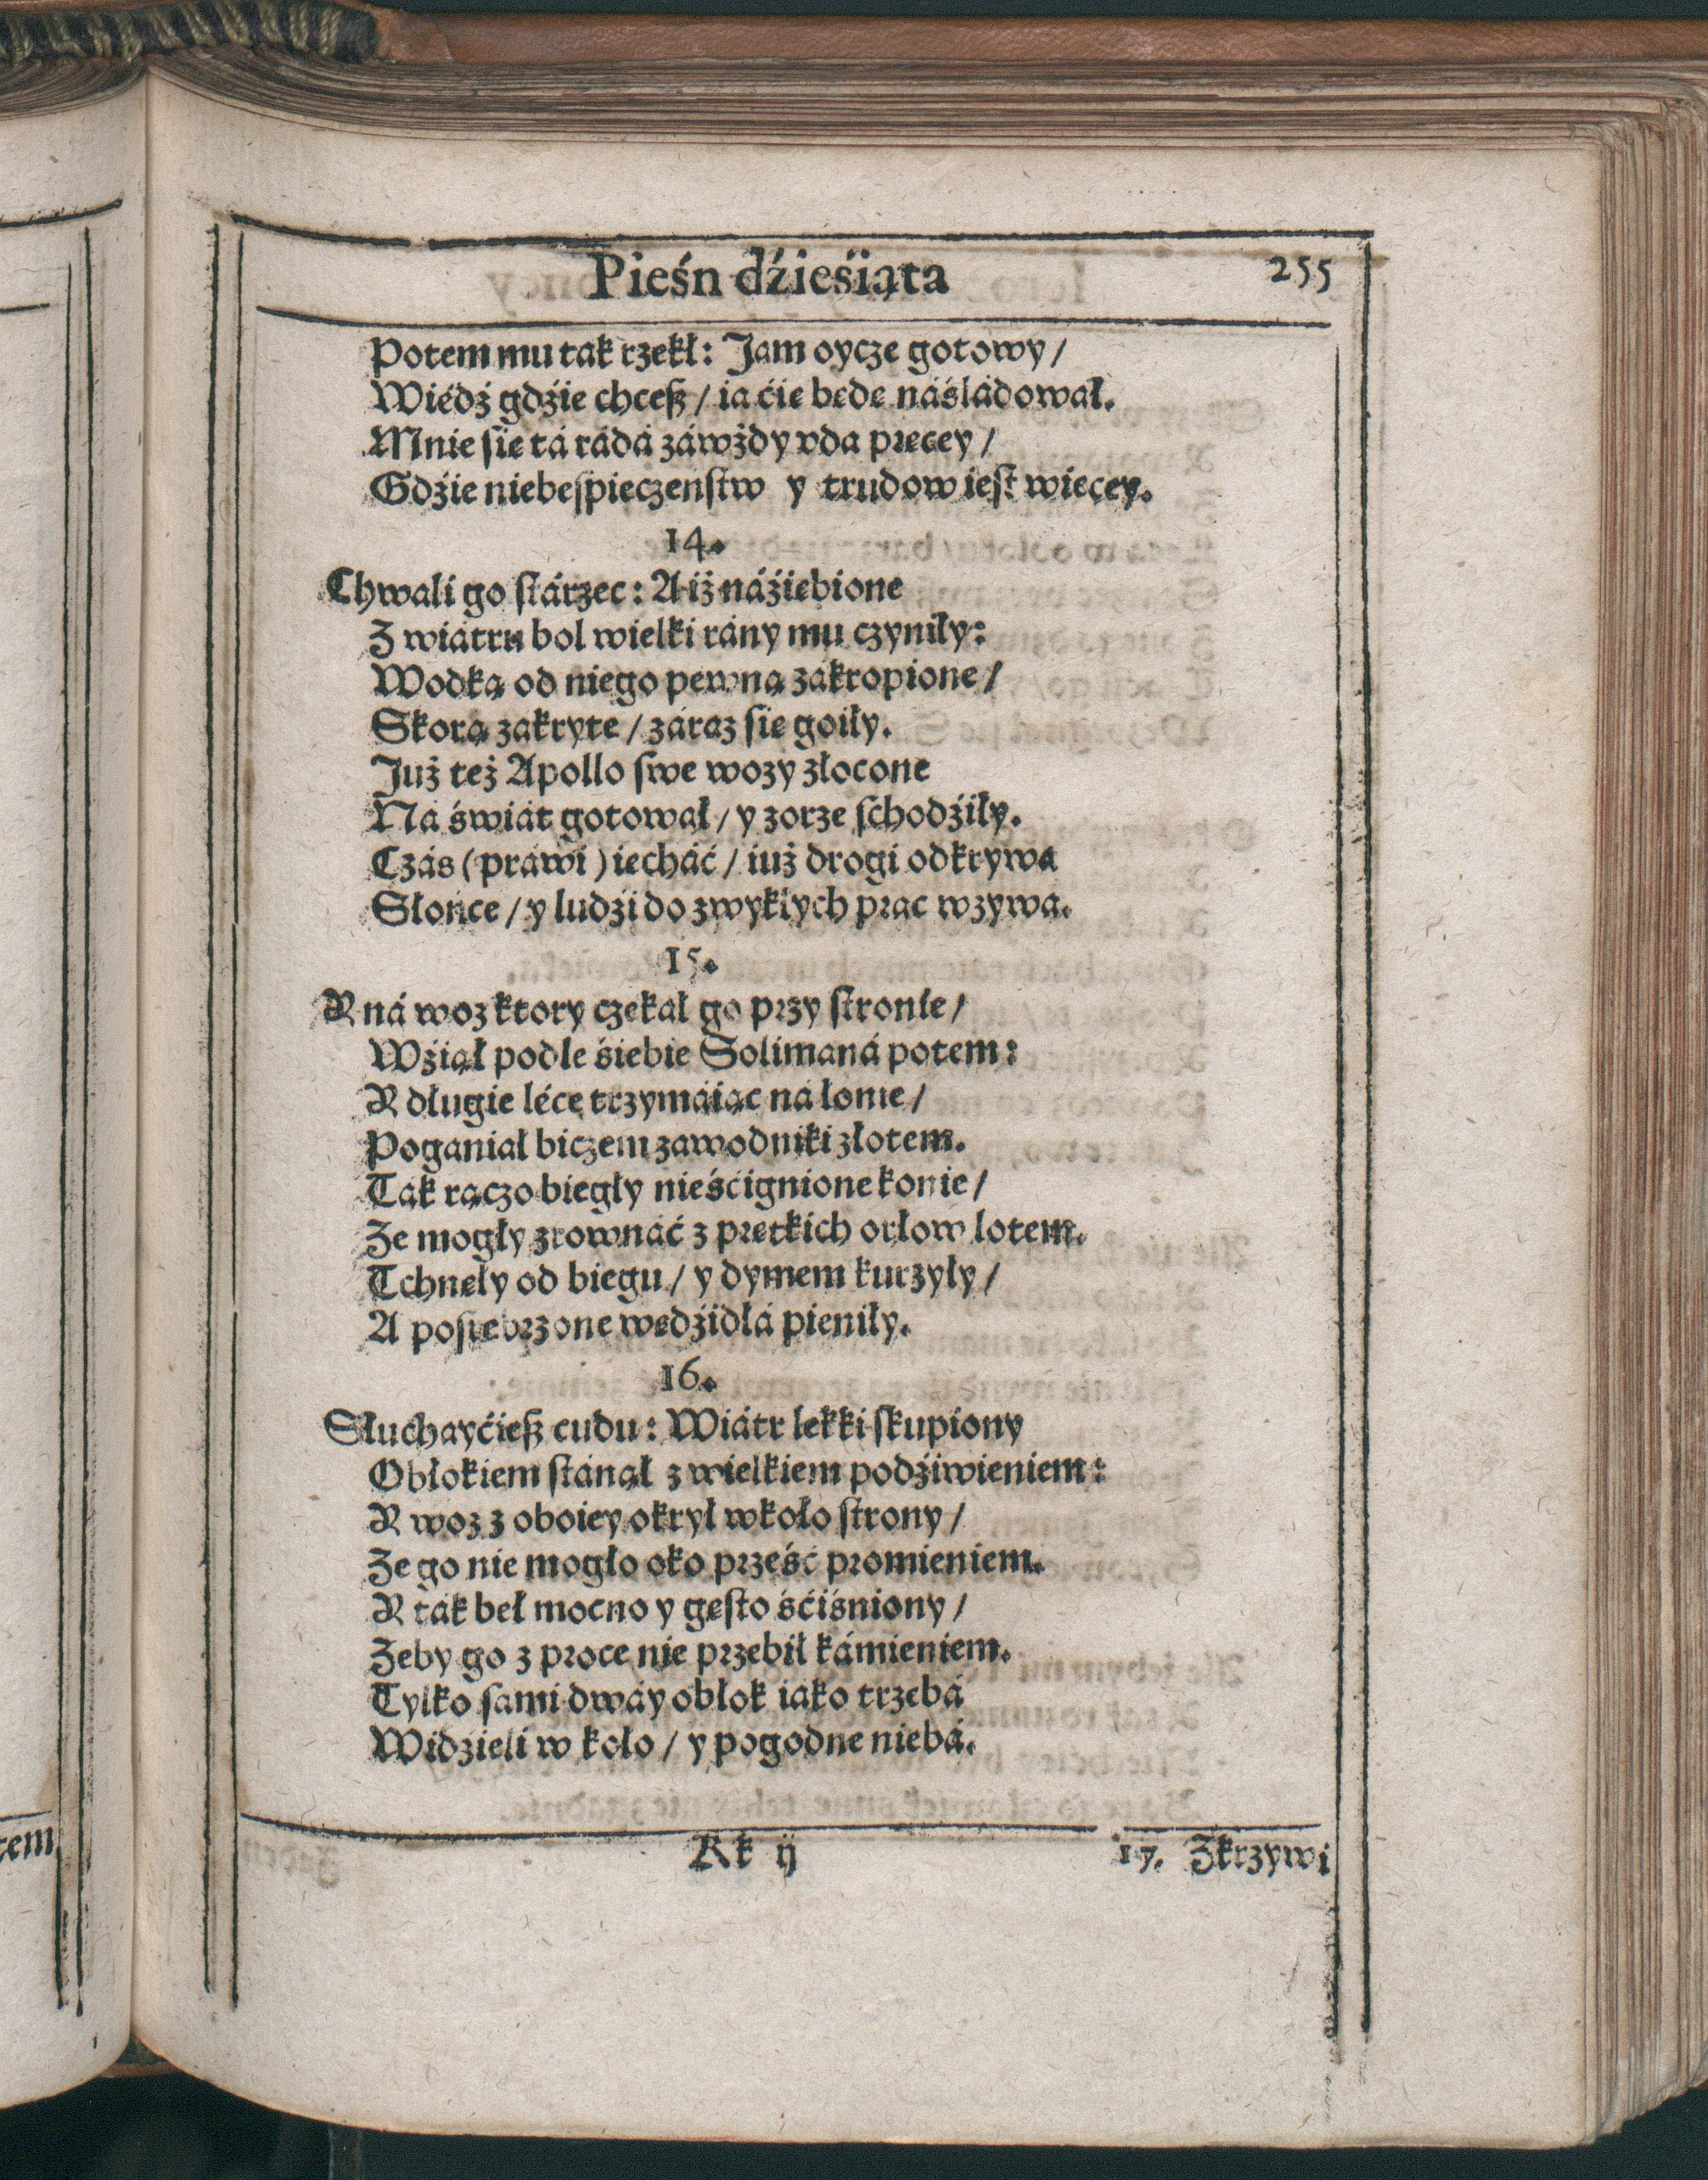 Pieśń dźieśiąta 255
Potem mu tak rzekł: Jam oycze gotowy /
Wiédź gdźie chceß / ia ćie bede náśládował.
Mnie sie tá rádá záwżdy vda precey /
Gdźie niebespieczeństw y trudow iest wiecey.
14.
Chwali go stárzec: A iż náźiebione
Z wiátru bol wielki rány mu czyniły:
Wodką od niego pewną zakropione /
Skorą zakryte / záraz sie goiły.
Już też Apollo swe wozy złocone
Ná świát gotował / y zorze schodźiły.
Czás (práwi) iecháć / iuż drogi odkrywa
Słońce / y ludźi do zwykłych prac wzywa.
15.
Y ná woz ktory czekał go przy stronie /
Wźiął podle śiebie Solimaná potem:
Y długie léce trzymáiąc ná łonie /
Poganiał biczem zawodniki złotem.
Tak rączo biegły nieśćignione konie /
Ze mogły zrownáć z pretkich orłow lotem.
Tchneły od biegu / y dymem kurzyły /
A posrebrzone wedźidłá pieniły.
16.
Słuchayćieß cudu: Wiátr lekki skupiony
Obłokiem stánął z wielkiem podźiwieniem:
Y woz z oboiey okrył wkoło strony /
Ze go nie mogło oko prześć promieniem.
Y ták beł mocno y gesto śćiśniony /
Zeby go z proce nie przebił kámieniem.
Tylko sami dwáy obłok iako trzebá
Widźieli w koło / y pogodne niebá.
Kk ij 17. Zkrzywi
tem